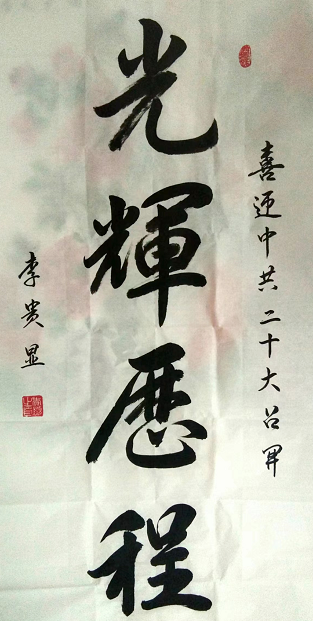 喜迎中共二十大召開
光輝歷程
李贵显